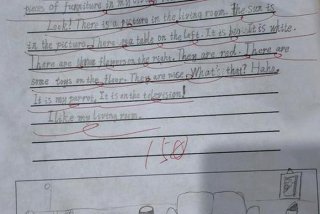 pieces of furniture in my living room.
Look! There is a picture in the living room. The sun is
in the picture. There is a table on the left. It is big. It is white.
There are three flowers on the right. They are red. There are
some toys on the floor. There are nice. What's that? Haha,
It is my parrot. It is on the television!
I like my living room.
150